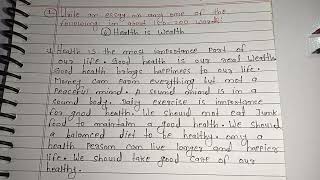 1. Write an essay on any one of the
following in about 150-200 words:
Health is Wealth
Health is the most importance part of
our life. Good health is our real wealth
Good health brings happiness to our life.
Money can earn everything but not a
peaceful mind. A sound mind is in a
sound body. Daily exercise is importance
for good health. We should not eat Junk
food to maintain a good health. We should
a balanced diet to be healthy. only a
health person can live longer and happier
life. We should take good care of our
healthy.